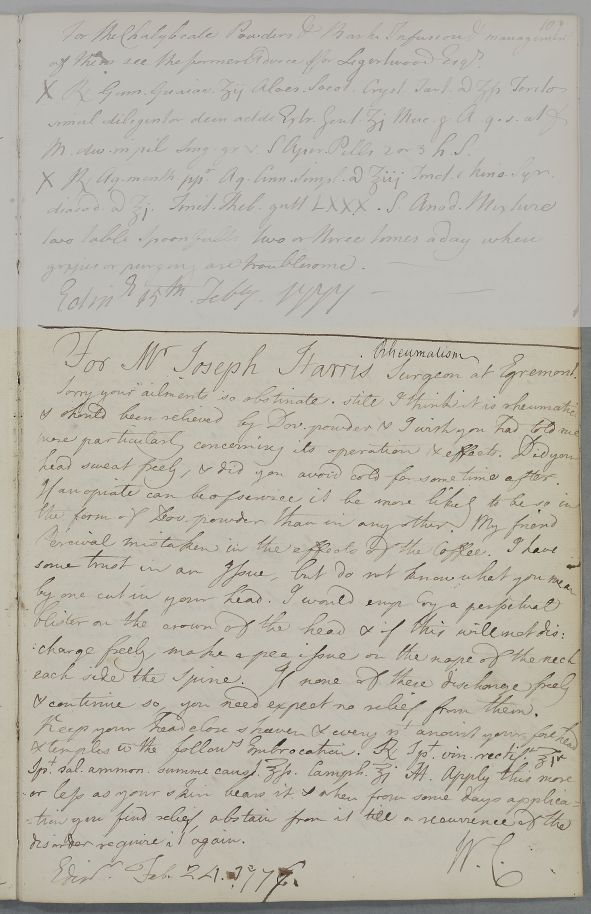 107
For the Chalybeate Powders & Bark Infusion & management
of them see the former Advice for Ligertwood Esqr.
X Rx Gum. Guaiac. ʒij Aloes. Socot. Cryst. Tart. a ʒſs Terito
simul diligenter dein adde Extr. Gent. ʒj Muc. g. A. q. s. ut f
M. div. in pil. sing. gr. v. S. Aper. Pills 2 or 3 h. S.
X Rx Aq. menth. ppt. Aq. Cinn. Simpl. a ℥iij Tinct. e kino. Syr.
diacod. a ℥j. Tinct. Theb. gutt LXXX. S. Anod. Mixture
two table Spoonfulls two or three times a day when
gripes or purging are troublesome.
Edinr. 15th. Feby. 1777
For Mr Joseph Harris Rheumatism Surgeon at Egremont.
Sorry your ailments so obstinate. still I think it is rheumatic
& should been relieved by Dov. powder & I wish you had told me
more particularly concerning its operation & effects. Did your
head sweat freely, & did you avoid cold for some time after.
If an opiate can be of service it be more likely to be so in
the form of Dovs. powder than in any other. My friend
Percival mistaken in the effects of the Coffee. I have
some trust in an Issue, but do not know what you mean
by one cut in your head. I would employ a perpetual
blister on the crown of the head & if this will not dis:
:charge freely, make a pea issue on the nape of the neck
each side the Spine. If none of these discharge freely
& continue so, you need expect no relief from them.
Keep your head close shaven & every nt. anoint your forehead
& temples wt. the followg Embrocation. Rx Spt. vin. rectif. ℥j
Spt. Sal. ammon. summe caust. ℥ſs. Camph. ʒj M. Apply this more
or less as your skin bears it & when from some days applica-
:tion you find relief, abstain from it till a recurrence of the
disorder require it again.
W. C.
Edinr. Feb. 24. 1777.